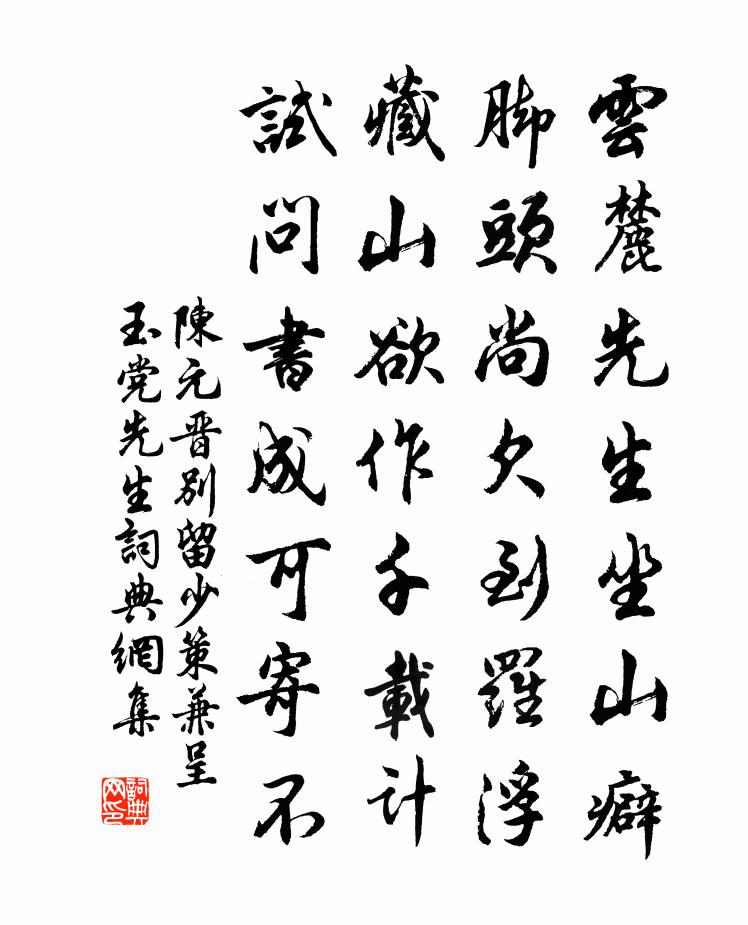 雲麓先生坐山癖
脚頭尚欠到羅浮
藏山欲作千載計
試問書成可寄不
陳元晋別留少策兼呈
玉党先生詞典網集
詞典網印